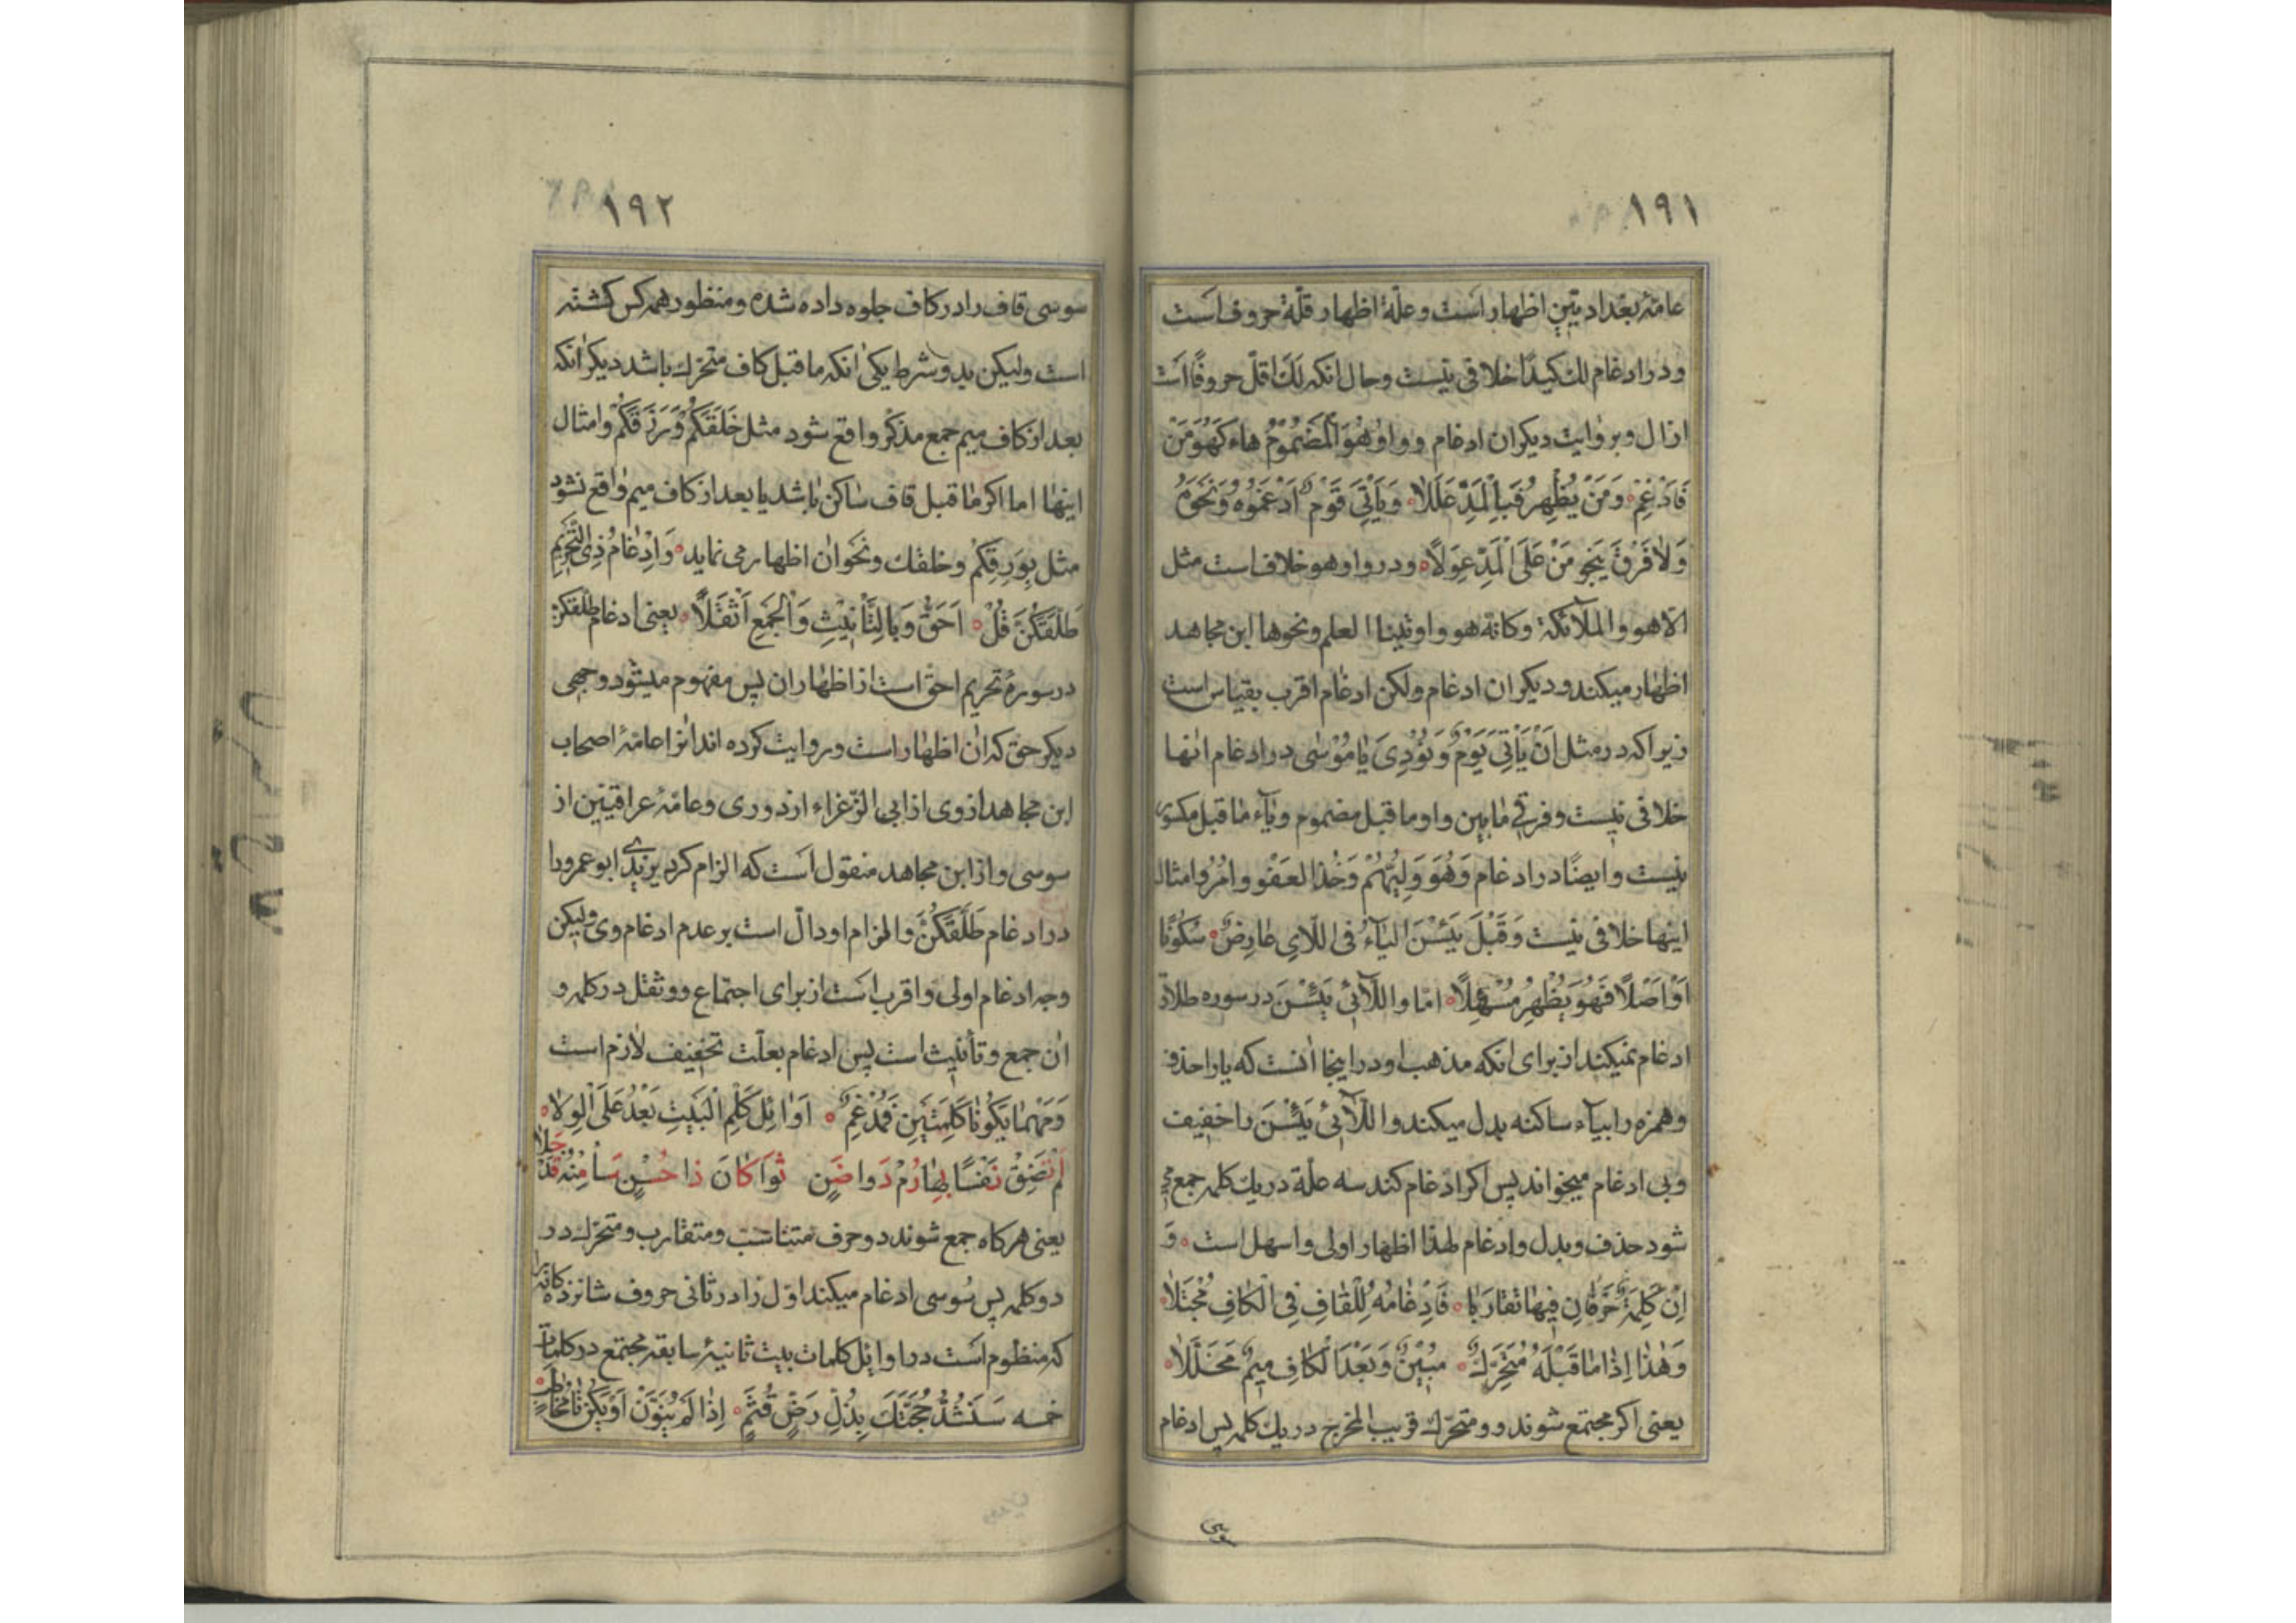 ١٩١
عامّهٔ بغدادیّین اظهار است و علّة اظهار قلّة حروف است
و در ادغام لك كیدًا خلافی نیست و حال انکه لَكَ اقلّ حروفًا است
از ال و بروایت دیکران ادغام و واوُ هُوَ الْمَضْمُومُ هاءً كَهُوَ مَنْ
فَادْغِمْ وَمَنْ يُظْهِرْ فَبِالْمَدِّ عَلَّلَا وَيَأْتِيَ يَوْمٌ اَدْغَمُوهُ وَنَحْوَهُ
وَلَا فَرْقَ يُنْجِي مَنْ عَلَى الْمَدِّ عَوَّلَا و در واو هو خلاف است مثل
الّا هو والملآئکة وکانّه هو واوتینا العلم ونحوها ابن مجاهد
اظهار میکند و دیکران ادغام ولکن ادغام اقرب بقیاس است
زیرا که در مثل اَنْ يَأْتِيَ يَوْمٌ وَنُودِيَ يَا مُوسٰى در ادغام انها
خلافی نیست و فرقی مابین واو ماقبل مضموم ویآء ماقبل مکسور
نیست وایضًا در ادغام وَهُوَ وَلِيُّهُمْ وَخُذِ الْعَفْوَ وَأْمُرْ وامثال
اینها خلافی نیست وَقَبْلَ يَئِسْنَ الْيَآءُ فِي اللَّايِ عَارِضٌ سُكُونًا
اَوْ اَصْلًا فَهُوَ يُظْهِرُ مُسْهِلًا امّا واللّآئی یَئِسْنَ در سوره طلاق
ادغام نمیکند از برای انکه مذهب او در اینجا انست که یا را حذف
وهمزه را بیآء ساکنه بدل میکند واللّآئی یَئِسْنَ را خفیف
وبی ادغام میخواند پس اکر ادغام کند سه علّة در یك کلمه جمع می
شود حذف وبدل وادغام لهذا اظهار اولی واسهل است وَ
اِنْ كَلِمَةٌ حَرْفَانِ فِيهَا تَقَارَبَا فَاِدْغَامُهُ لِلْقَافِ فِي الْكَافِ مُجْتَلَا
وَهٰذَا اِذَا مَا قَبْلَهُ مُتَحَرِّكٌ مُبِينٌ وَبَعْدَ الْكَافِ مِيمٌ تَخَلَّلَا
یعنی اکر مجتمع شوند دو متحرّك قریب المخرج در یك کلمه پس ادغام
١٩٢
سوسی قاف را در کاف جلوه داده شده ومنظور همه کس کشته
است ولیکن بدو شرط یکی انکه ماقبل کاف متحرّك باشد دیکر انکه
بعد از کاف میم جمع مذکّر واقع شود مثل خَلَقَكُمْ وَرَزَقَكُمْ وامثال
اینها اما اکر ماقبل قاف ساکن باشد یا بعد از کاف میم واقع نشود
مثل بِوَرِقِكُمْ وخلقك ونحو ان اظهار می نماید وَاِدْغَامُ ذِي التَّحْرِيمِ
طَلَّقَكُنَّ قُلْ اَحَقُّ وَبِالتَّأْنِيثِ وَالْجَمْعِ اُثْقِلَا یعنی ادغام طلّقکن
در سورهٔ تحریم احق است از اظهار ان پس مفهوم میشود وجهی
دیکر حق که ان اظهار است وروایت کرده اند انرا عامّهٔ اصحاب
ابن مجاهد از وی از ابی الزّعراء از دوری وعامّهٔ عراقیّین از
سوسی واز ابن مجاهد منقول است که الزام کرد یزیدی ابوعمرو را
در ادغام طَلَّقَكُنَّ والزام او دالّ است بر عدم ادغام وی ولیکن
وجه ادغام اولی واقرب است از برای اجتماع دو ثقل در کلمه و
ان جمع وتأنیث است پس ادغام بعلّت تخفیف لازم است
وَمَهْمَا يَكُونَا كَلِمَتَيْنِ فَمُدْغِمٌ اَوَائِلَ كَلِمِ الْبَيْتِ بَعْدُ عَلَى الْوِلَا
لَمْ تَضِقْ نَفْسًا بِهَا رُمْ دَوَا ضَنٍ ثَوَا كَانَ ذَا حُسْنٍ سَأَ مِنْهُ قَدْ جَلَا
یعنی هرکاه جمع شوند دو حرف متناسب ومتقارب ومتحرّك در
دو کلمه پس سوسی ادغام میکند اوّل را در ثانی حروف شانزده کانه را
که منظوم است در اوایل کلمات بیت ثانیهٔ سابقه مجتمع در کلمات
خمسه سَنَشُدُّ حُجَّتَكَ بِذُلِّ رَضٍّ قُثَمٍ اِذَا لَمْ يُنَوَّنْ اَوْ يَكُنْ تَا مُخَاطَبٍ